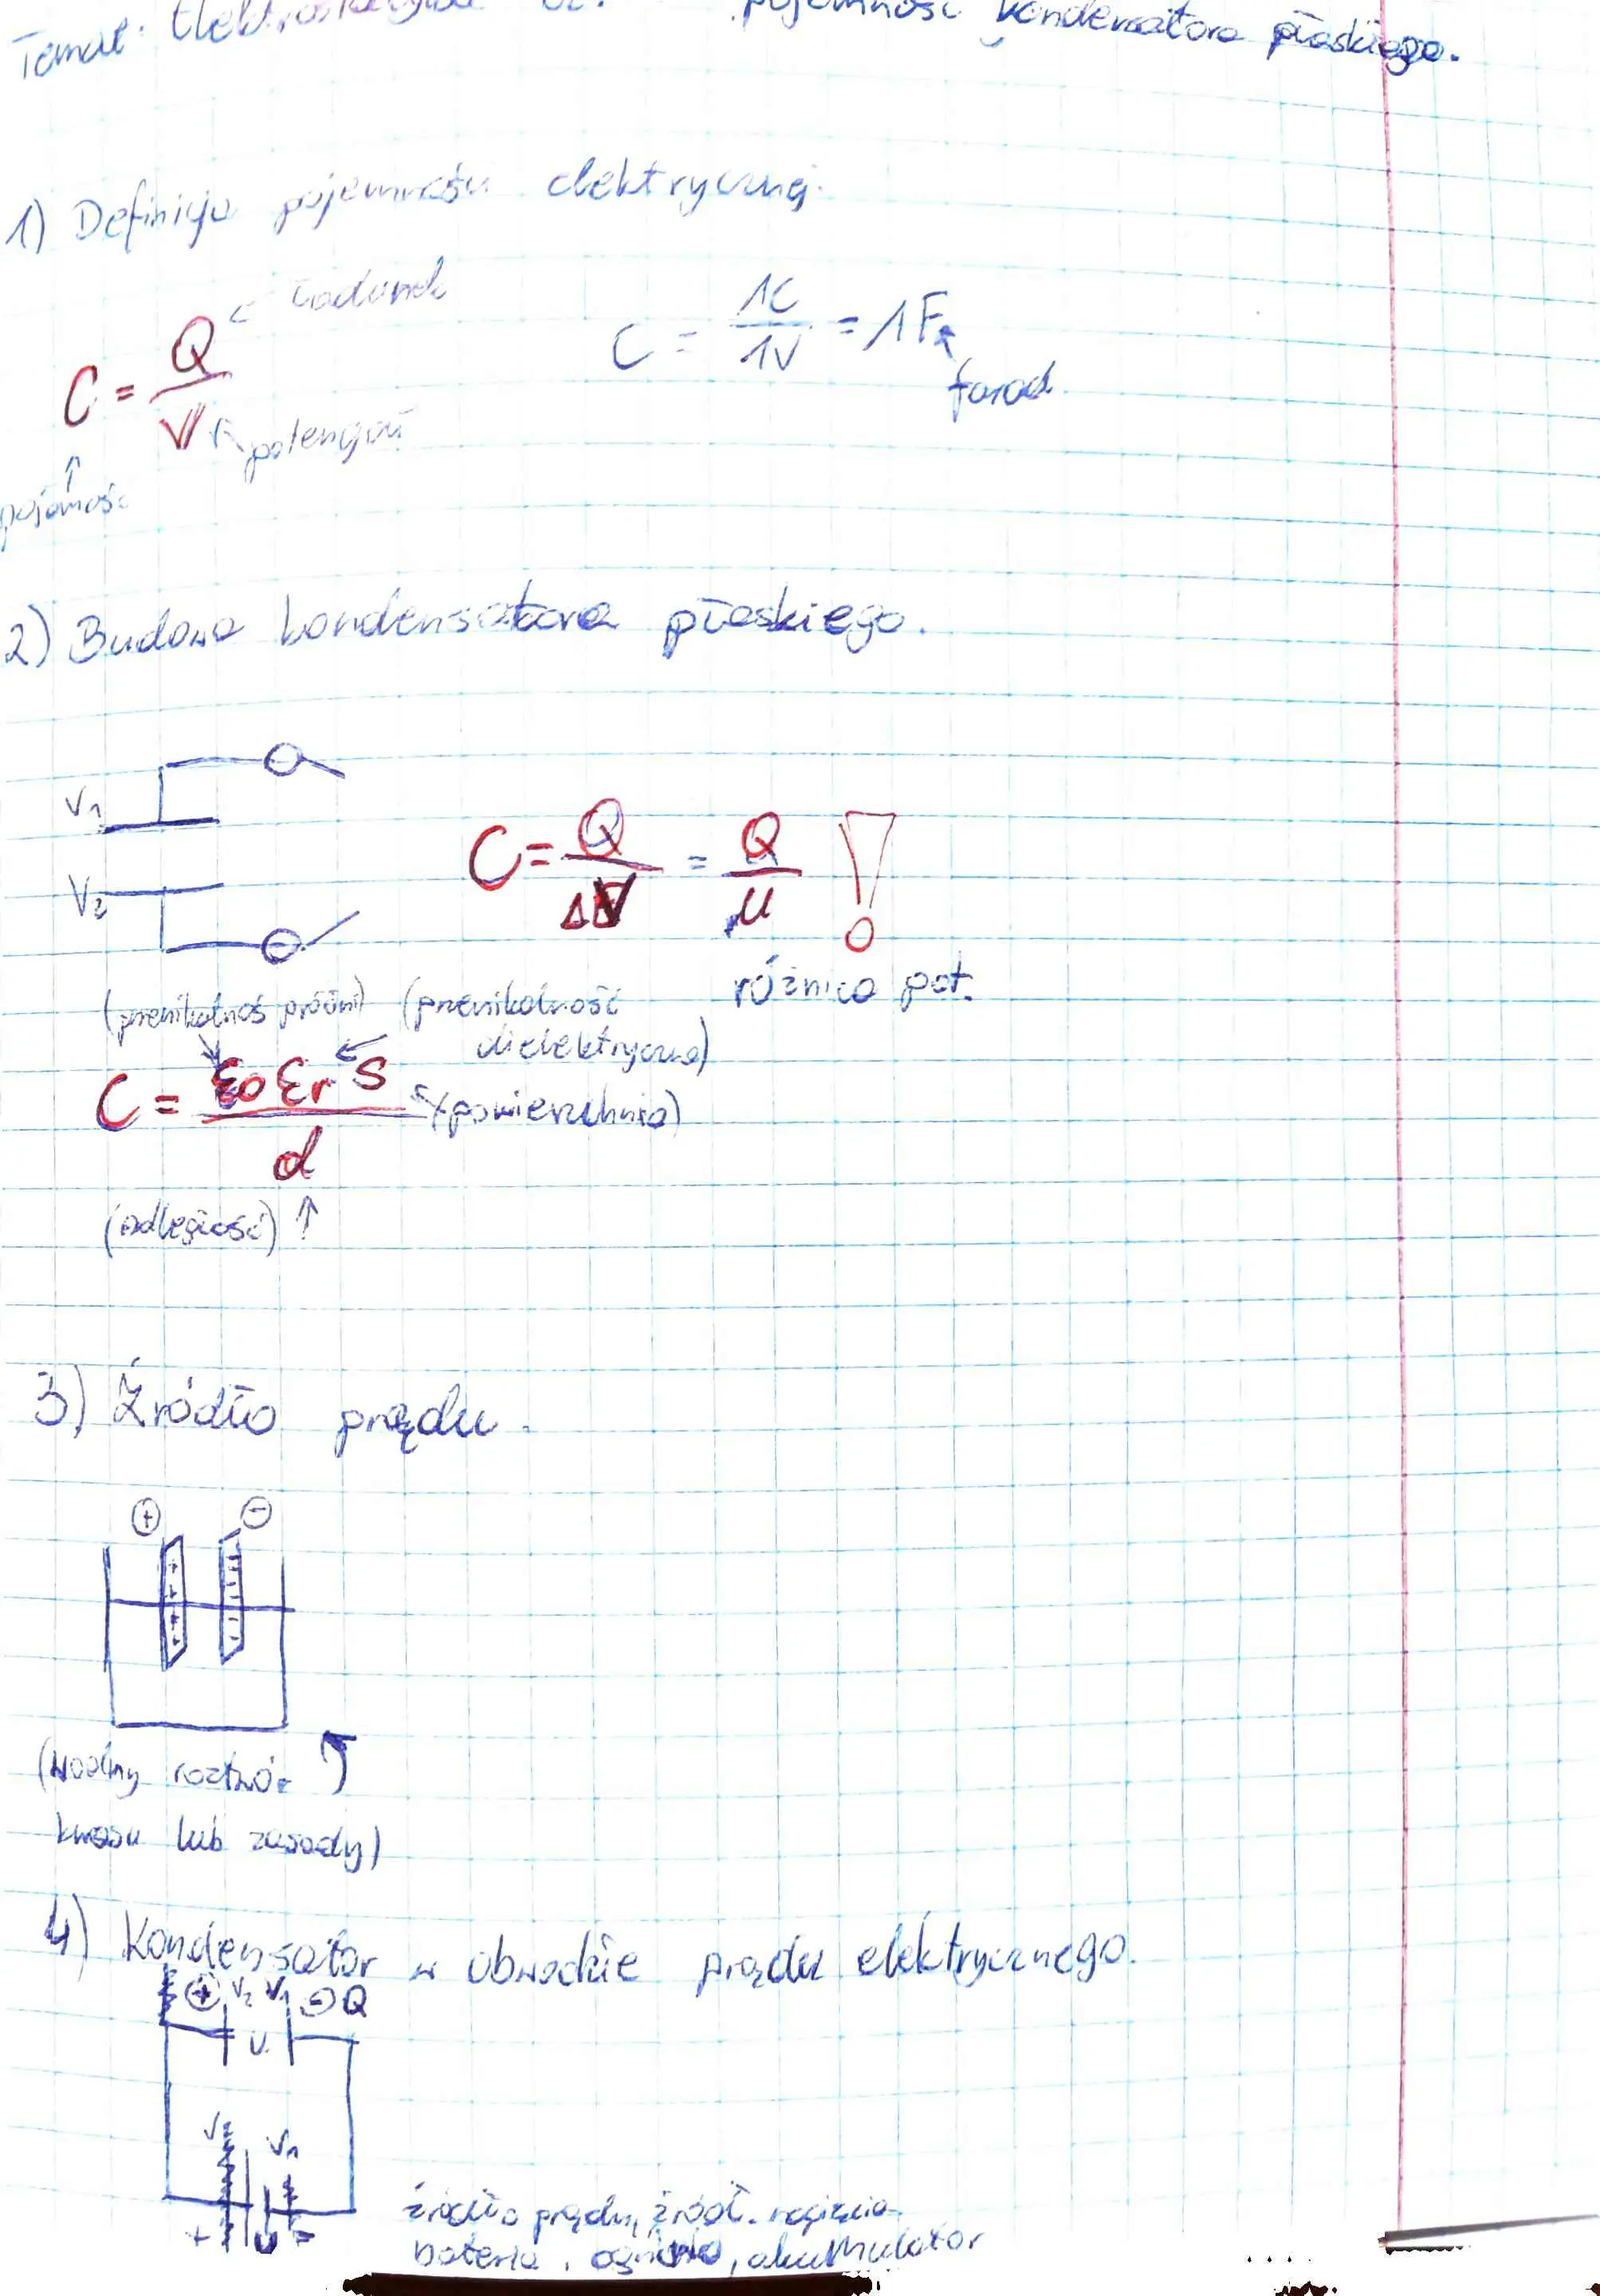 Temat: pojemność kondensatora płaskiego.
1) Definicja pojemności elektrycznej.
C = Q / V
ładunek
potencjał
pojemość
C = 1C / 1V = 1F
farad
2) Budowa kondensatora płaskiego.
V1
V2
C = Q / ΔV = Q / U !
różnica pot.
(przenikalność próżni) (przenikalność
dielektryczna)
C = ε0 εr S / d
(powierzchnia)
(odległość) ↑
3) Źródło prądu.
+ −
(wodny roztwór
kwasu lub zasady)
4) Kondensator w obwodzie prądu elektrycznego.
+ V2 V1 − Q
U
V1
+ U −
źródło prądu, źródł. napięcia
bateria, ogniwo, akumulator